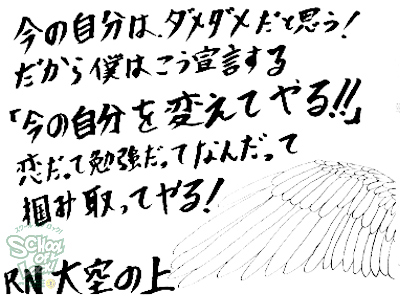 今の自分は、ダメダメだと思う!
だから僕はこう宣言する
「今の自分を変えてやる!!」
恋だって勉強だってなんだって
掴み取ってやる!
SCHOOL OF LOCK!
RN 大空の上